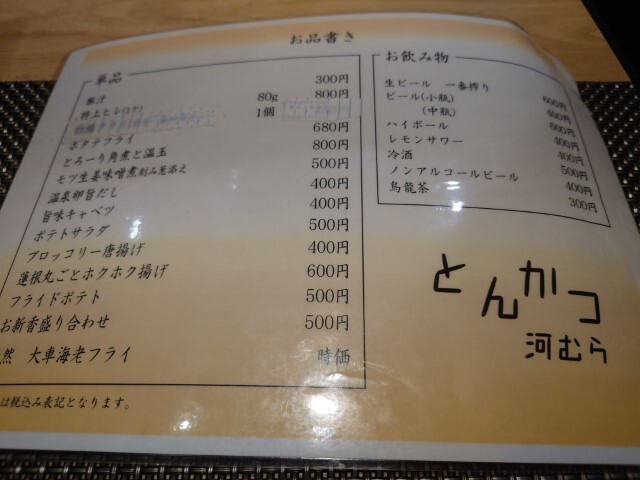 お品書き
単品
豚汁 300円
特上ヒレ(1ケ) 80g 800円
1個
ホタテフライ 680円
とろーり角煮と温玉 800円
モツ生姜味噌煮刻み葱添え 500円
温泉卵旨だし 400円
旨味キャベツ 400円
ポテトサラダ 500円
ブロッコリー唐揚げ 400円
蓮根丸ごとホクホク揚げ 600円
フライドポテト 500円
お新香盛り合わせ 500円
然 大車海老フライ 時価
は税込み表記となります。
お飲み物
生ビール 一番搾り 600円
ビール(小瓶) 400円
(中瓶) 600円
ハイボール 400円
レモンサワー 400円
冷酒 500円
ノンアルコールビール 400円
烏龍茶 300円
とんかつ
河むら